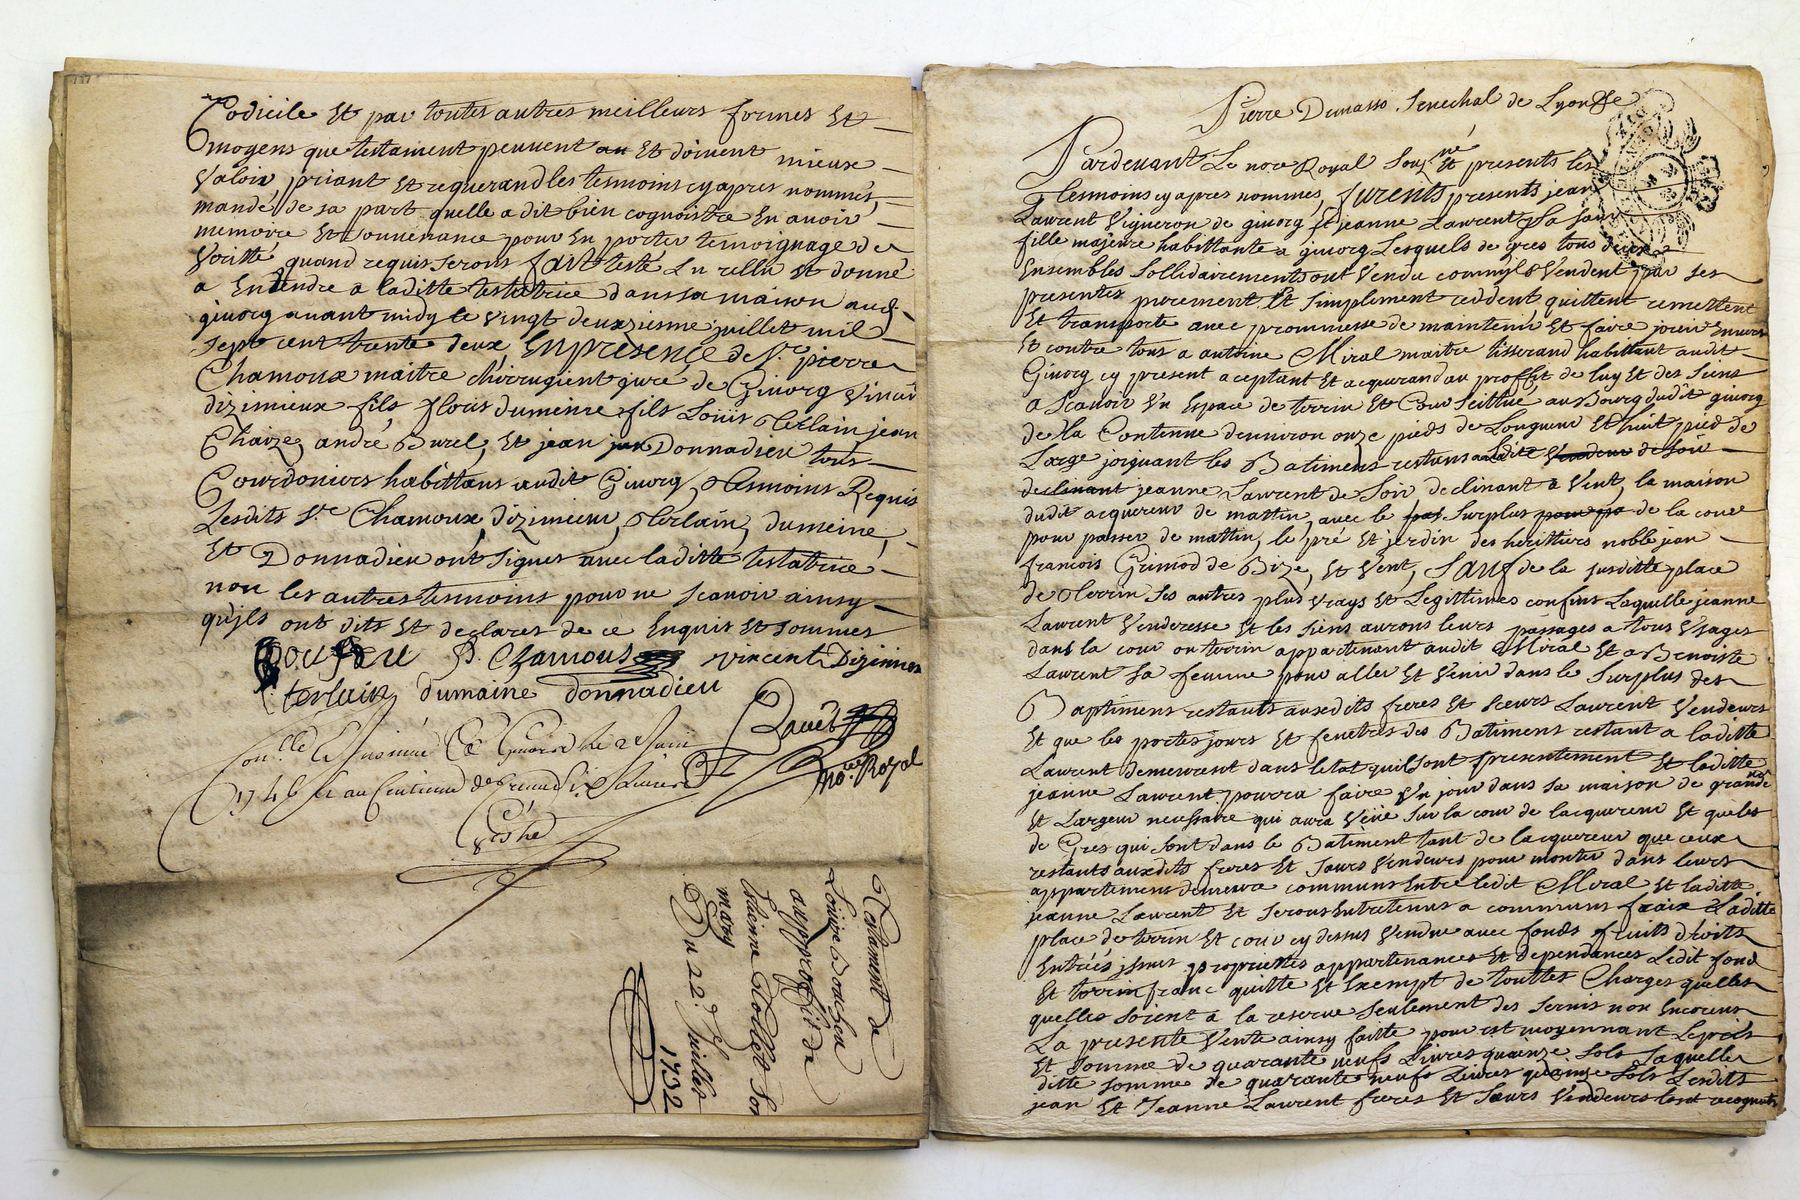 Codicile Et par toutes autres meilleurs formes Et
moyens que testament peuvent au Et doivent mieux
Valoir, priant Et requerand les tesmoins cy apres nommés,
mandé de sa part quelle a dit bien cognoistre En avoir
memoire Et souvenance pour En porter temoignage de
Veritté quand requis seront fait testé Lu rellu Et donné
a Entendre a laditte testatrice dans sa maison aud.
givorg avant midy le vingt deuxziesme juillet mil
sept cent trante deux En presence de Sr. pierre
Chamoux maitre chirrugient juré de Givorg Vincent
dizimieux fils flouis dumeine fils Loüis Terlain jean
Chaize, andré Burel, Et jean Donnadieu tous
Courdoniers habittans audit Givorg tesmoins Requis
Lesdits Sr. Chamoux, dizimieu, Terlain, dumeine,
Et Donnadieu ont signes avec laditte testatrice
non les autres tesmoins pour ne scavoir ainsy
qu'jls ont dits Et declares de ce Enquis Et sommes
P. Chamous vincent Dizimieu
terlain dumaine donnadieu
Ravet
no.re Royal
1746
Testament de
Louise
au proffit de
Etienne Son
mary
Du 22e. Juillet
1732
Pierre Dumasso Senechal de Lyon
Pardevant Le nore Royal Souz.né Et presents les
tesmoins cy apres nommés, furents presents jean
Laurent Vigneron de givorg Et jeanne Laurent Sa Sœur
fille majeure habittante a givorg Lesquels de grés tous deux
Ensembles Sollidairements ont Vendu comm'jls Vendent par ses
presentes purement Et Simplement ceddent quittent remettent
Et transporte avec prommesse de maintenir Et faire jouir Envers
Et contre tous a antoine Miral maitre tisserand habittant audit
Givorg cy present aceptant Et acquerand au proffit de luy Et des Siens
a Scavoir Un Espace de terrin Et Cour Scittué au Bourg dudit givorg
de la Contenue d'environ onze pieds de Longueur Et huit pied de
Large joignant les Batiments restans a laditte Vendeur de soir
declinant jeanne Laurent de Soir declinant a Vent, la maison
dudit acquereur de mattin, avec le pas Surplus de la cour
pour passer de mattin, le pré Et jardin des heritiers noble jean
françois Grimod de Bize, Et Vent, Sauf de la susditte place
de terrin Ses autres plus vrays Et Legittimes confins Laquelle jeanne
Laurent Venderesse Et les siens aurons leurs passages a tous Usages
dans la cour ou terrin appartenant audit Miral Et a Benoiste
Laurent Sa femme pour aller Et Venir dans le Surplus des
Baptiments restants auxdits freres Et sœurs Laurent Vendeurs
Et que les portes jours Et fenetres des Batiments restant a laditte
Laurent demeurent dans letat qu'ils ont presentement Et laditte
jeanne Laurent pourra faire Un jour dans sa maison de grande
Et Largeur necessaire qui aura Veüe sur la cour de lacquereur Et que les
de Gres qui sont dans le Batiment tant de lacquereur que ceux
restants auxdits freres Et sœurs Vendeurs pour monter dans leurs
appartemens demeura communs Entre ledit Miral Et laditte
jeanne Laurent Et serons Entretenus a communs fraix Laditte
place de terrin Et cour cy dessus Vendue avec fonds fruits droits
Entrées jssues proprietés appartenances Et dependances Ledit fond
Et terrin franc quitte Et Exempt de touttes Charges quelles
quelles soient a la reserve seulement des servis non Encouru
La presente Vente ainsy faitte pour Et moyennant Le prix
Et Somme de quarante neufs Livres quinze Sols Laquelle
ditte Somme de quarante neufs Livres quinze Sols Lesdits
jean Et Jeanne Laurent freres Et Sœurs Vendeurs